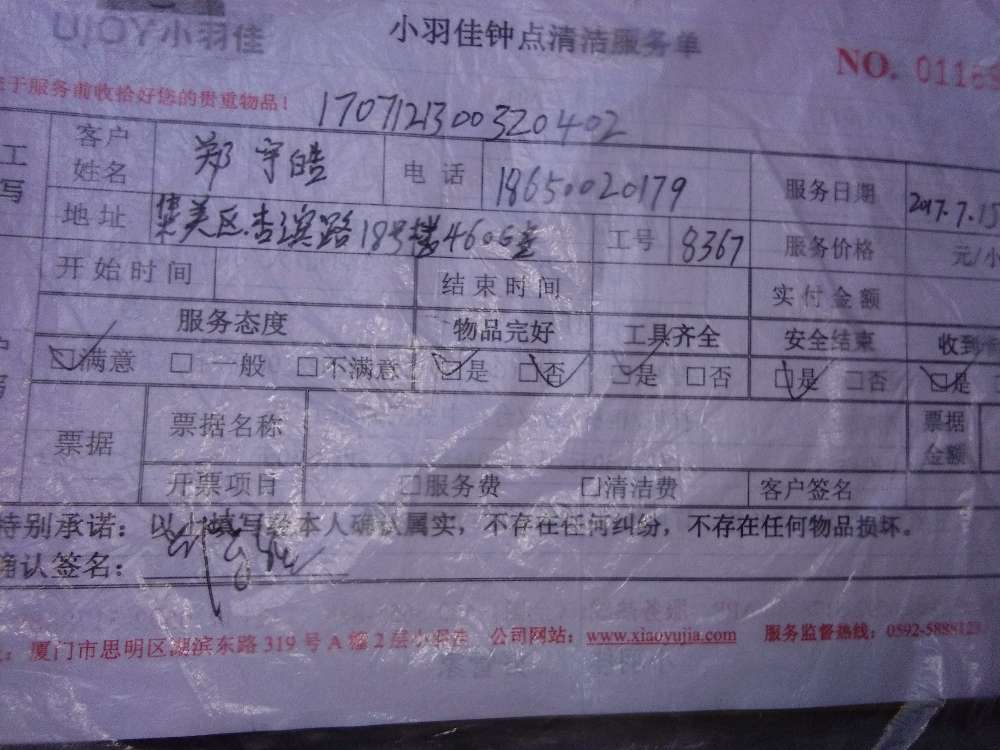 UJOY小羽佳 小羽佳钟点清洁服务单 NO. 0116
于服务前收拾好您的贵重物品！
1707121300320402
客户姓名 郑宇皓 电话 18650020179 服务日期 2017.7.13
地址 集美区杏滨路18号楼4606室 工号 8367 服务价格 元/小
开始时间 结束时间 实付金额
服务态度 物品完好 工具齐全 安全结束 收到
☑满意 □一般 □不满意 ☑是 ☑否 ☑是 □否 ☑是 □否 ☑是
票据 票据名称 票据金额
开票项目 □服务费 □清洁费 客户签名
特别承诺：以上填写经本人确认属实，不存在任何纠纷，不存在任何物品损坏。
确认签名：
厦门市思明区湖滨东路319号A楼2层小羽佳 公司网站：www.xiaoyujia.com 服务监督热线：0592-5888123